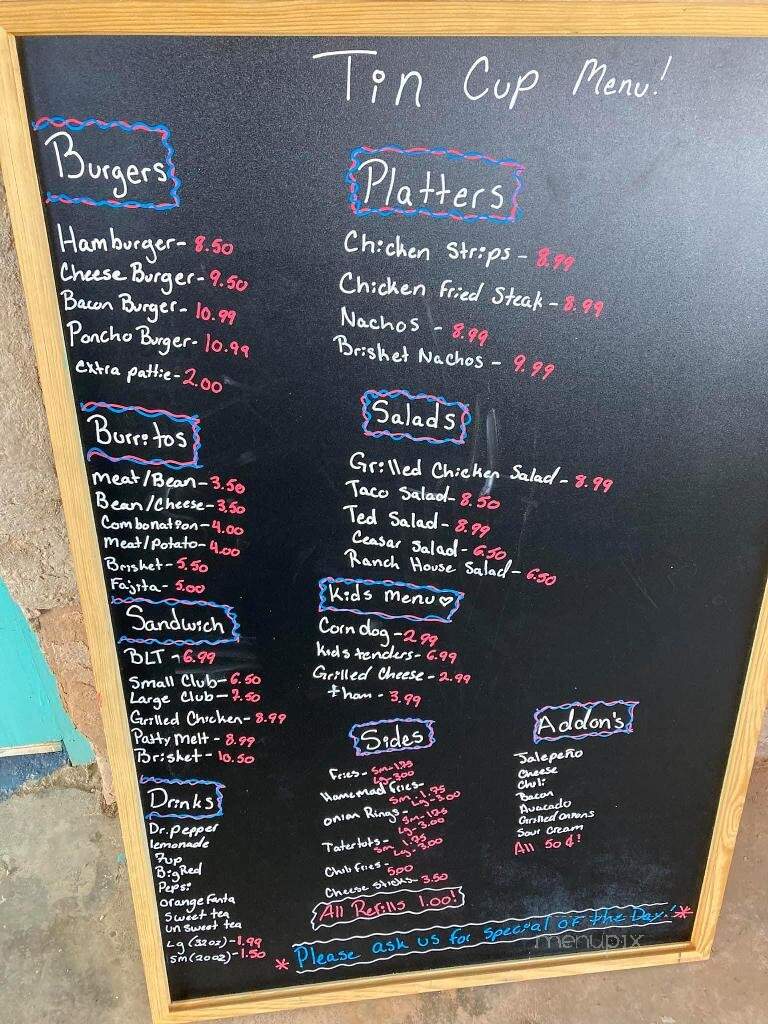 Tin Cup Menu!
Burgers
Hamburger - 8.50
Cheese Burger - 9.50
Bacon Burger - 10.99
Poncho Burger - 10.99
extra pattie - 2.00
Burritos
Meat/Bean - 3.50
Bean/Cheese - 3.50
Combonation - 4.00
Meat/potato - 4.00
Brisket - 5.50
Fajita - 5.00
Sandwich
BLT - 6.99
Small Club - 6.50
Large Club - 7.50
Grilled Chicken - 8.99
Patty Melt - 8.99
Brisket - 10.50
Drinks
Dr. pepper
lemonade
7up
Big Red
Pepsi
orange Fanta
Sweet tea
un sweet tea
Lg (32oz) - 1.99
Sm (20oz) - 1.50
Platters
Chicken Strips - 8.99
Chicken Fried Steak - 8.99
Nachos - 8.99
Brisket Nachos - 9.99
Salads
Grilled Chicken Salad - 8.99
Taco Salad - 8.50
Ted Salad - 8.99
Ceasar Salad - 6.50
Ranch House Salad - 6.50
Kids Menu ♡
Corn dog - 2.99
kids tenders - 6.99
Grilled Cheese - 2.99
+ ham - 3.99
Sides
Fries - Sm - 1.75
Lg - 3.00
Homemad Fries -
Sm - 1.75
Lg - 3.00
onion Rings -
Sm - 1.75
Lg - 3.00
Tatertots -
Sm 1.75
Lg - 3.00
Chili Fries - 5.00
Cheese sticks - 3.50
All Refills 1.00!
Addon's
Jalepeño
Cheese
Chili
Bacon
Avacado
Grilled onions
Sour cream
All 50¢!
*Please ask us for special of the Day!*
menupix